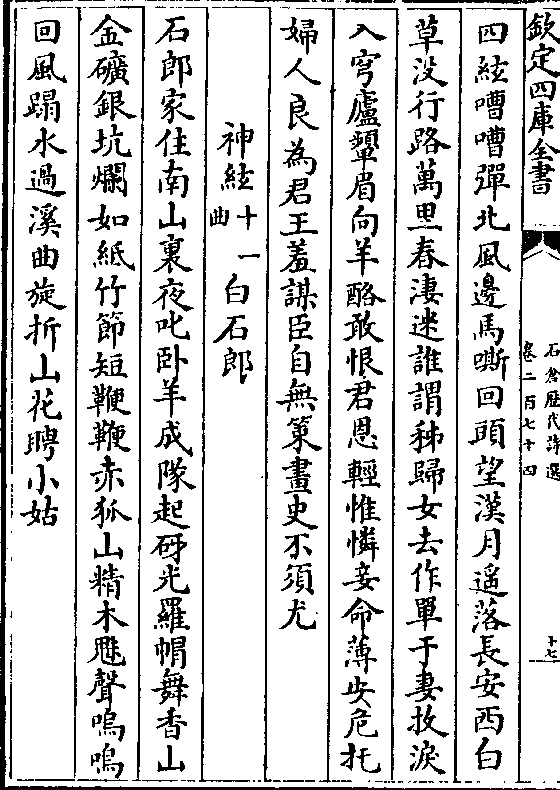 欽定四庫全書
石倉歷代詩選
卷二百七十四
十七
四絃嘈嘈彈北風邊馬嘶回頭望漢月遥落長安西白
草没行路萬里春淒迷誰謂秭歸女去作單于妻抆淚
入穹廬顰眉向羊酪敢恨君恩輕惟憐妾命薄安危托
婦人良為君王羞謀臣自無策畫史不須尤
神絃十一曲
白石郎
石郎家住南山裏夜叱卧羊成隊起砑光羅帽舞香山
金礦銀坑爛如紙竹節短鞭鞭赤狐山精木魅聲嗚嗚
回風蹋水過溪曲旋折山花聘小姑